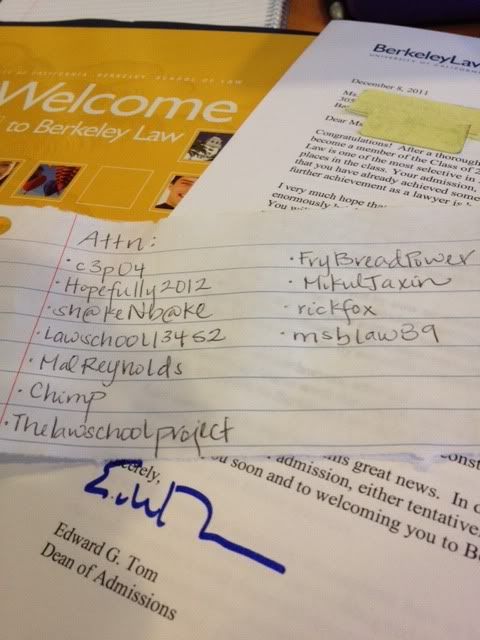 OF CALIFORNIA, BERKELEY, SCHOOL OF LAW
Welcome
to Berkeley Law
BerkeleyLaw
UNIVERSITY OF CALIFORNIA
December 8, 2011
Ms.
305
Dear Ms
Congratulations! After a thorough
become a member of the Class of 2
Law is one of the most selective in
places in the class. Your admission,
that you have already achieved some
further achievement as a lawyer is
I very much hope that
enormously
You will
Attn:
• c3p04
• Hopefully2012
• sh@keNb@ke
• Lawschool13452
• MalReynolds
• Chimp
• Thelawschoolproject
• FryBreadPower
• MikulJaxin
• rickfox
• msblaw39
this great news. In
admission, either tentative
u soon and to welcoming you to Be
Edward G. Tom
Dean of Admissions